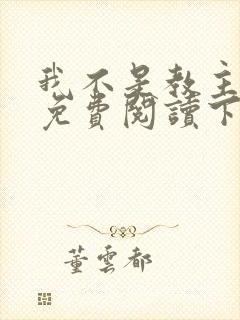 我不是教主
免費閱讀下
董雲都